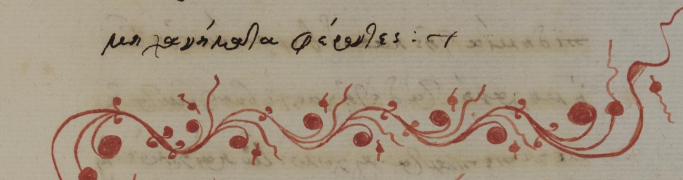 μηχανήματα φέροντες :~